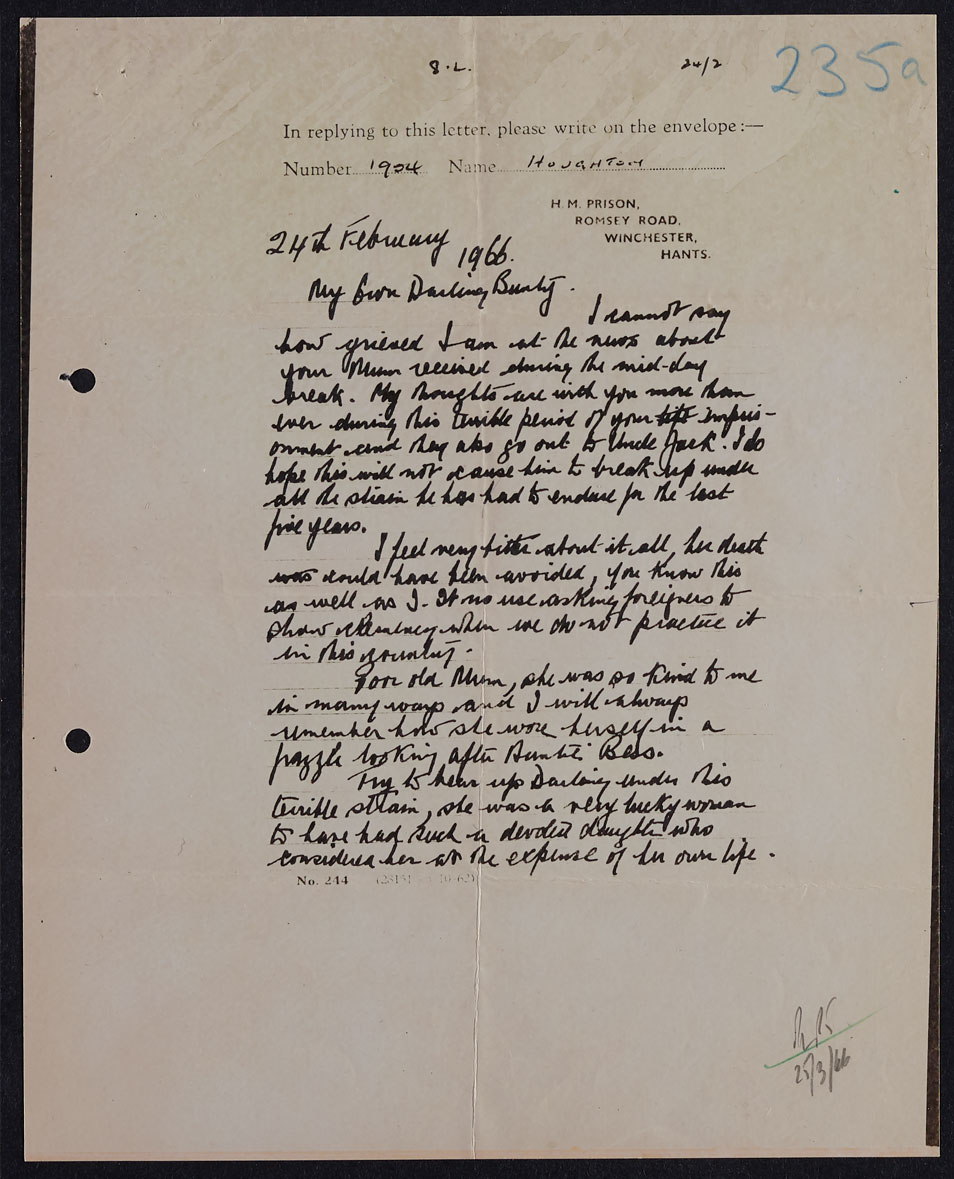 S.L. 24/2 235a
In replying to this letter, please write on the envelope:—
Number 1904 Name HOUGHTON
H. M. PRISON,
ROMSEY ROAD,
WINCHESTER,
HANTS.
24th February
1966.
My Own Darling Bunty.
I cannot say
how grieved I am at the news about
your Mum received during the mid-day
break. My thoughts are with you more than
ever during this terrible period of your impris-
onment and they also go out to Uncle Jack. I do
hope this will not cause him to break up under
all the strain he has had to endure for the last
five years.
I feel very bitter about it all, her death
was could have been avoided, you know this
as well as I. It no use asking foreigners to
show clemency when we do not practice it
in this country.
Poor old Mum, she was so kind to me
in many ways and I will always
remember how she wore herself in a
frazzle looking after Auntie Bess.
Try to bear up Darling under this
terrible strain, she was a very lucky woman
to have had such a devoted daughter who
considered her at the expense of her own life.
No. 244
25/3/66